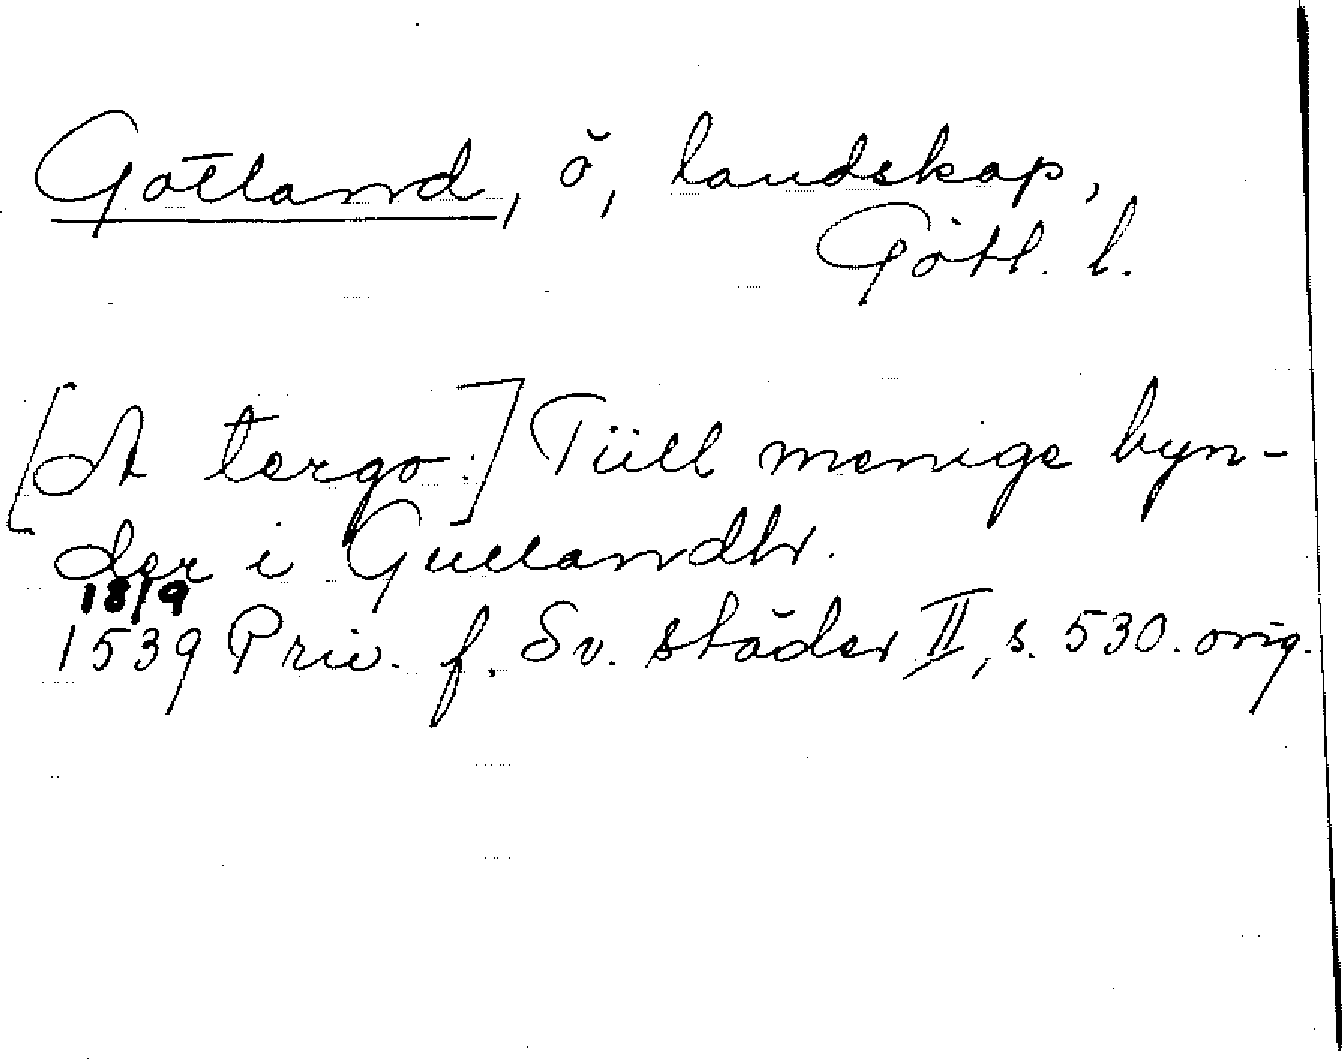 Gotland, ö, landskap,
Gotl. l.
[A tergo:] Tüll menige byn-
der i Gullandh.
18/9
1539 Priv. f. Sv. städer II, s. 530. orig.